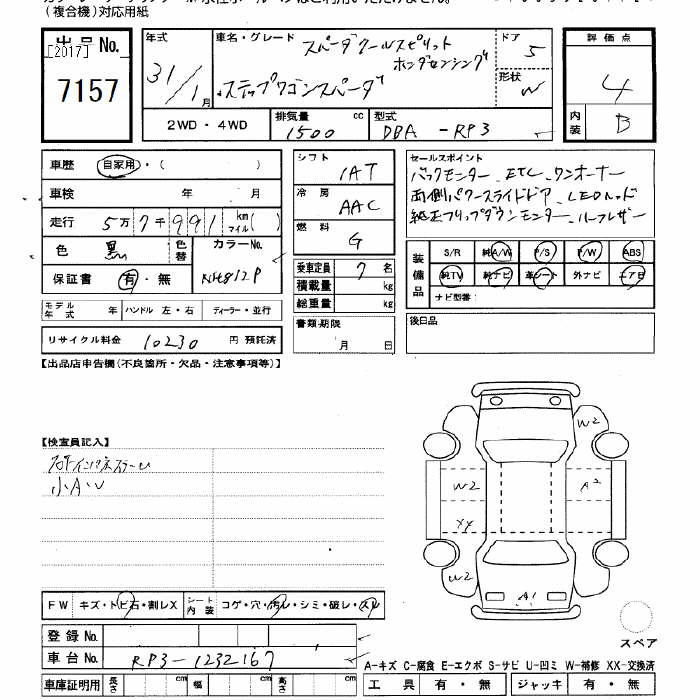 (複合機)対応用紙
出品No.
[2017]
7157
年式
31/1月
車名・グレード
スパーダクールスピリット
ホンダセンシング
ステップワゴンスパーダ
ドア
5
形状
W
評価点
4
内装
B
2WD・4WD
排気量
1500
cc
型式
DBA -RP3
車歴
自家用・( )
車検
年 月
走行
5万7千991
km
マイル( )
色
黒
色替
カラーNo.
NH812P
保証書
有・無
モデル年式
年
ハンドル 左・右
ディーラー・並行
リサイクル料金
10230
円 預託済
シフト
IAT
冷房
AAC
燃料
G
乗車定員
7名
積載量
kg
総重量
kg
書類期限
月 日
セールスポイント
バックモニター、ETC、ワンオーナー
両側パワースライドドア、LEDヘッド
純正フリップダウンモニター、ハーフレザー
装備品
S/R
純A/W
P/S
P/W
ABS
純TV
純ナビ
革シート
外ナビ
エアB
ナビ型番:
後日品
【出品店申告欄(不良箇所・欠品・注意事項等)】
【検査員記入】
小AU
W2
W2
A2
XX
W2
A1
スペア
FW
キズ・トビ石・割レX
シート内装
コゲ・穴・汚レ・シミ・破レ・スレ
登録No.
車台No.
RP3-1232167
車庫証明用
長さ
cm
幅
cm
高さ
cm
A-キズ C-腐食 E-エクボ S-サビ U-凹ミ W-補修 XX-交換済
工具
有・無
ジャッキ
有・無